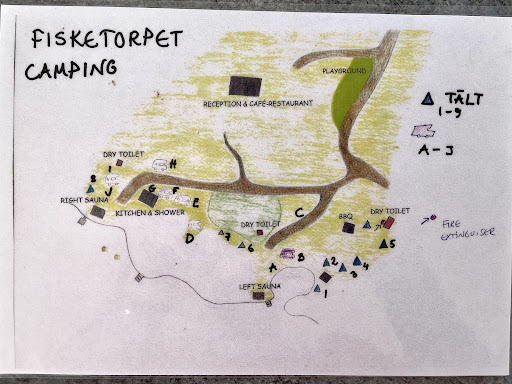 FISKETORPET
CAMPING
PLAYGROUND
RECEPTION & CAFÉ-RESTAURANT
TÄLT
1-9
A-J
DRY TOILET
I
H
8
J
RIGHT SAUNA
G
F
E
KITCHEN & SHOWER
D
C
DRY TOILET
7
6
BBQ
DRY TOILET
5
FIRE
EXTINGUISER
A
B
2
3
4
1
LEFT SAUNA